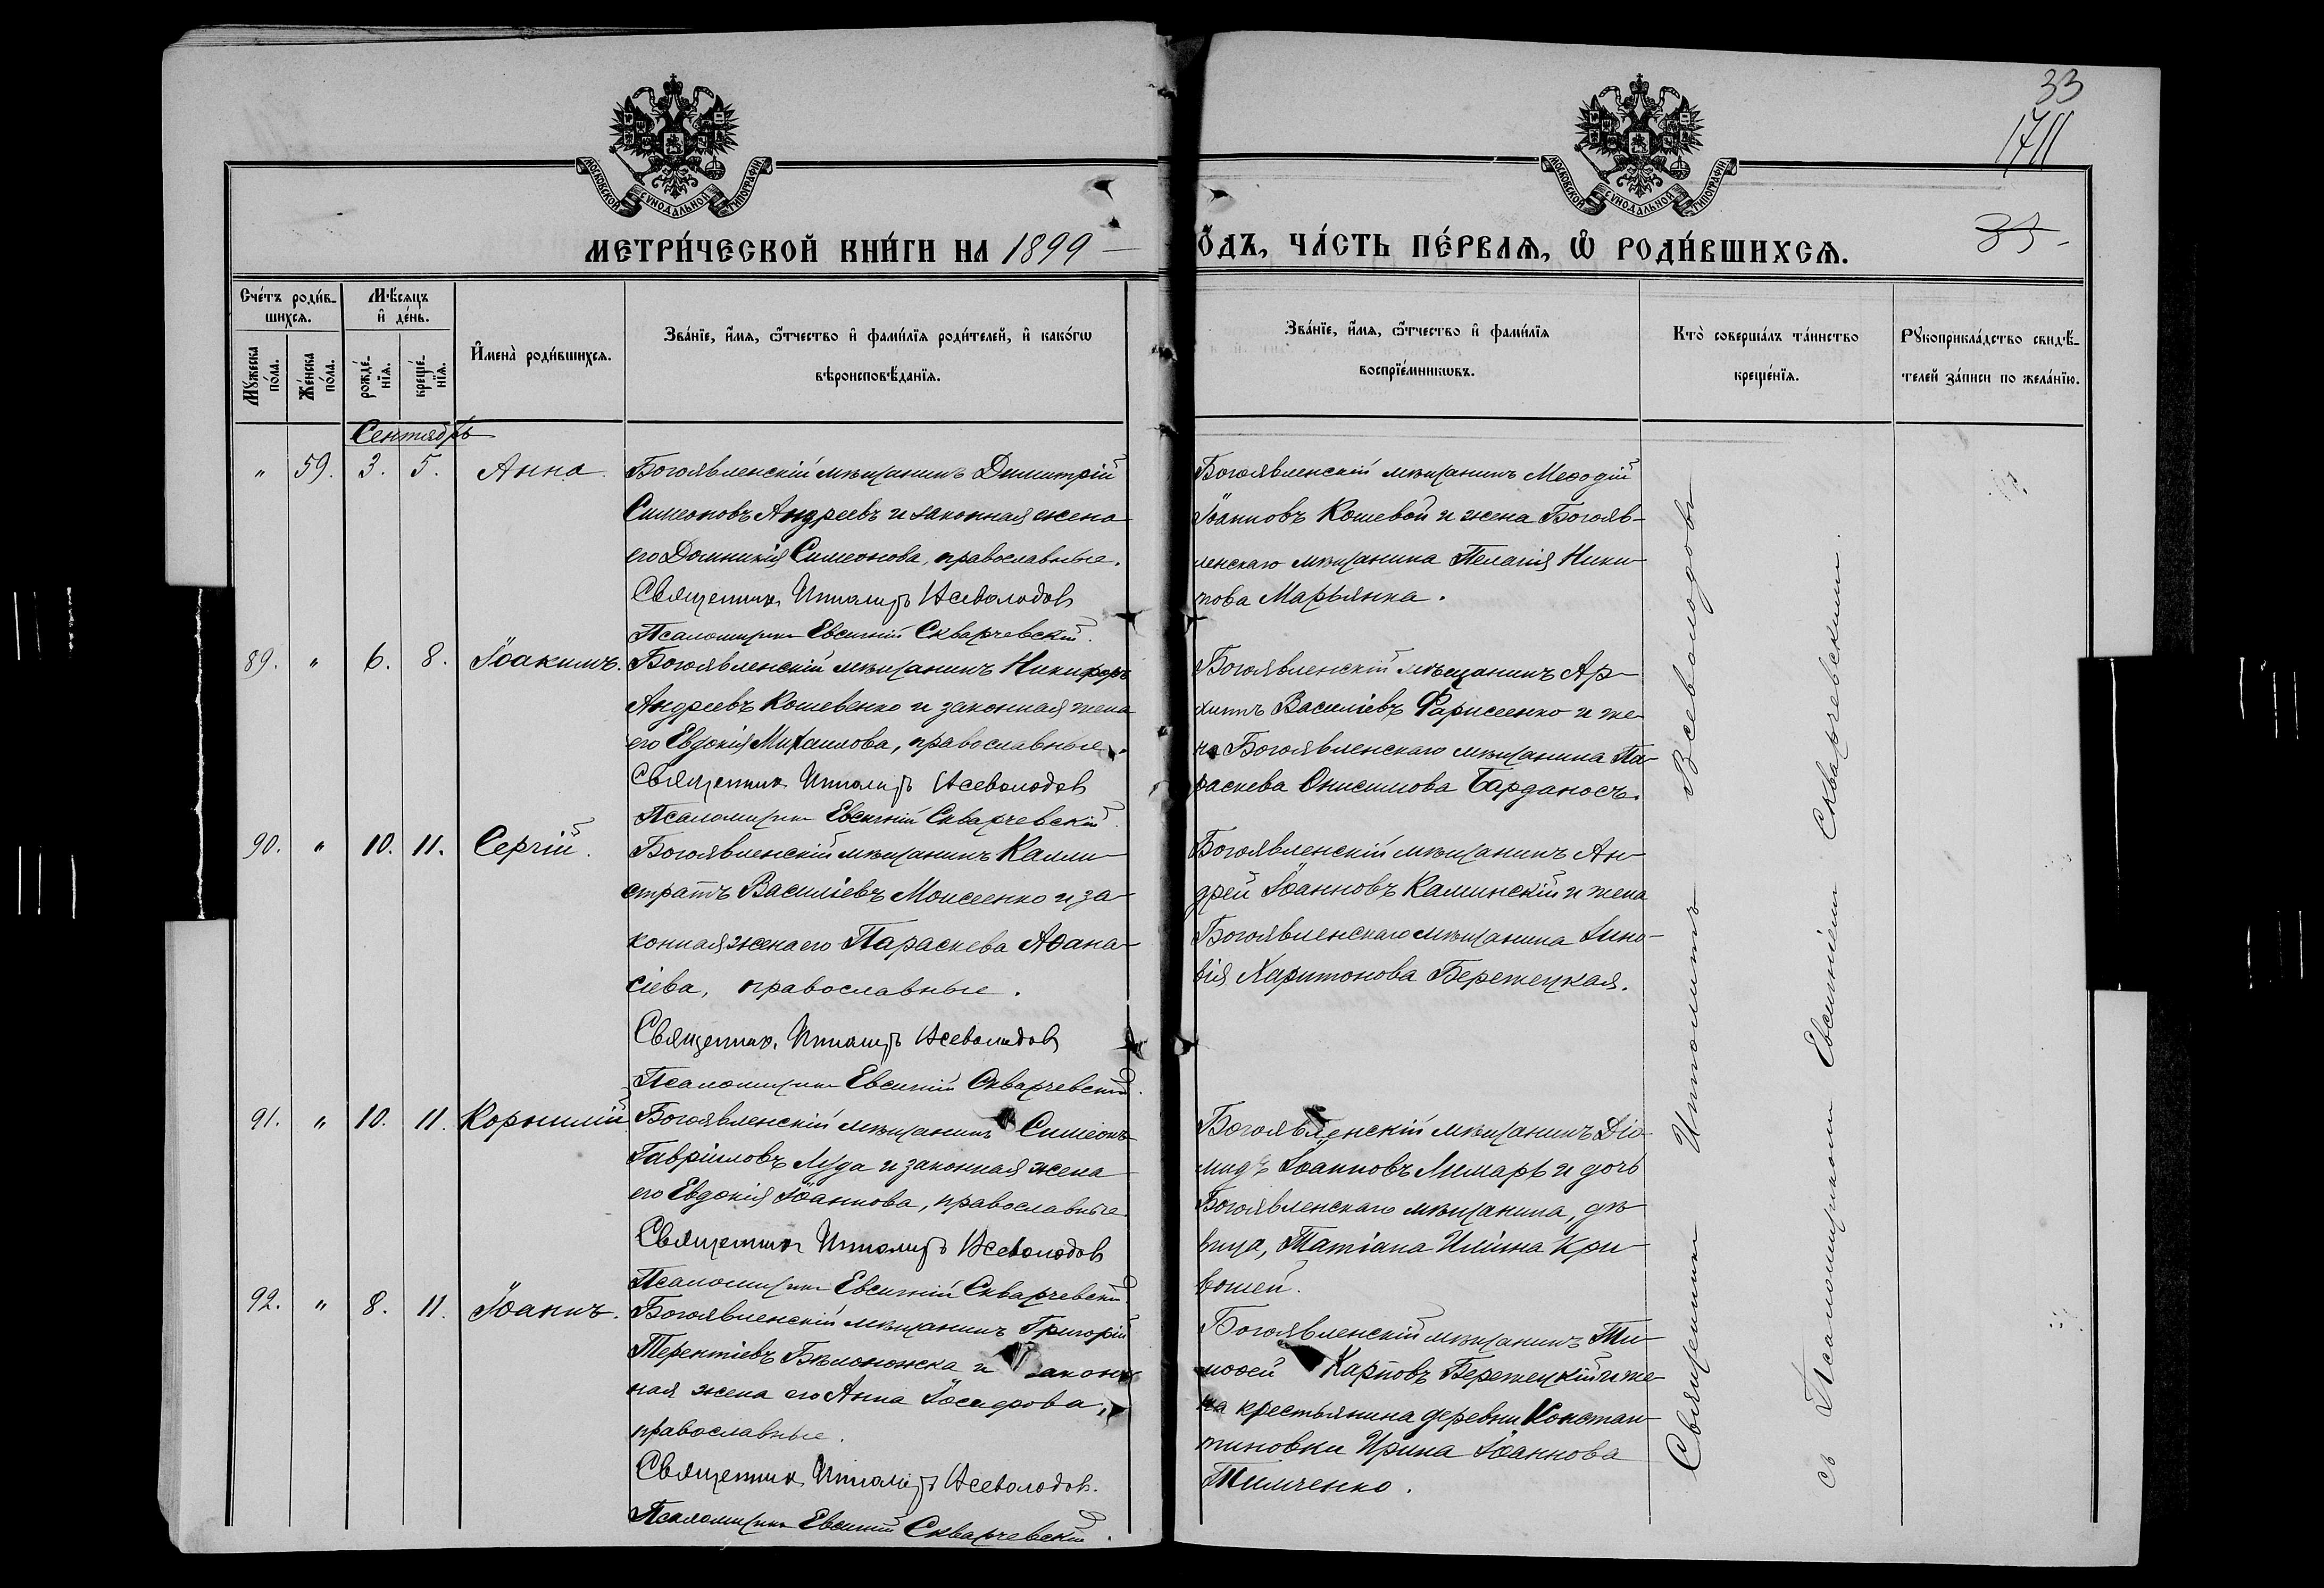 33
1711
35
МОСКОВСКОЙ СѴНОДАЛЬНОЙ ТИПОГРАФІИ
МОСКОВСКОЙ СѴНОДАЛЬНОЙ ТИПОГРАФІИ
МЕТРИ́ЧЕСКОЙ КНИ́ГИ НА 1899
ОДЪ, ЧА́СТЬ ПЕ́РВАѦ, Ѽ РОДИ́ВШИХСѦ.
Счетъ родив-
шихся.
Мужеска пола.
Женска пола.
Мѣсяцъ и день.
рожде-
нія.
креще-
нія.
Имена родившихся.
Званіе, имя, отчество и фамилія родителей, и какогѡ
вѣроисповѣданія.
Званіе, имя, отчество и фамилія
воспріемникѡвъ.
Кто совершалъ таинство
крещенія.
Рукоприкладство свидѣ-
телей записи по желанію.
Сентябрь
" 59. 3. 5. Анна.
Богоявленскій мѣщанинъ Димитрій
Симеоновъ Андреевъ и законная жена
его Домникія Симеонова, православные.
Священникъ Ипполитъ Всеволодовъ
Псаломщикъ Евсигній Скварчевскій.
Богоявленскій мѣщанинъ Меѳодій
Іоанновъ Кошевой и жена Богояв-
ленскаго мѣщанина Пелагія Ники-
това Марьянка.
89. " 6. 8. Іоакимъ.
Богоявленскій мѣщанинъ Никифоръ
Андреевъ Кошевенко и законная жена
его Евдокія Михаилова, православные.
Священникъ Ипполитъ Всеволодовъ
Псаломщикъ Евсигній Скварчевскій.
Богоявленскій мѣщанинъ Ар-
хиппъ Василіевъ Фарисеенко и же-
на Богоявленскаго мѣщанина Па-
раскева Онисимова Барданосъ.
90. " 10. 11. Сергій.
Богоявленскій мѣщанинъ Калли-
стратъ Василіевъ Моисеенко и за-
конная жена его Параскева Аѳана-
сіева, православные.
Священникъ Ипполитъ Всеволодовъ
Псаломщикъ Евсигній Скварчевскій.
Богоявленскій мѣщанинъ Ан-
дрей Іоанновъ Калинскій и жена
Богоявленскаго мѣщанина Зино-
вія Харитонова Бережецкая.
91. " 10. 11. Корнилій
Богоявленскій мѣщанинъ Симеонъ
Гавріиловъ Луда и законная жена
его Евдокія Іоаннова, православные
Священникъ Ипполитъ Всеволодовъ
Псаломщикъ Евсигній Скварчевскій.
Богоявленскій мѣщанинъ Діо-
мидъ Іоанновъ Лимарь и дочь
Богоявленскаго мѣщанина, дѣ-
вица, Татіана Иліина Кри-
вошей.
92. " 8. 11. Іоаннъ.
Богоявленскій мѣщанинъ Григорій
Терентіевъ Бѣлоножка и закон-
ная жена его Анна Іосифова,
православные.
Священникъ Ипполитъ Всеволодовъ.
Псаломщикъ Евсигній Скварчевскій.
Богоявленскій мѣщанинъ Ти-
моѳей Карповъ Бережецкій и же-
на крестьянина деревни Констан-
тиновки Ирина Іоаннова
Тимченко.
Священникъ Ипполитъ Всеволодовъ
съ Псаломщикомъ Евсигніемъ Скварчевскимъ.